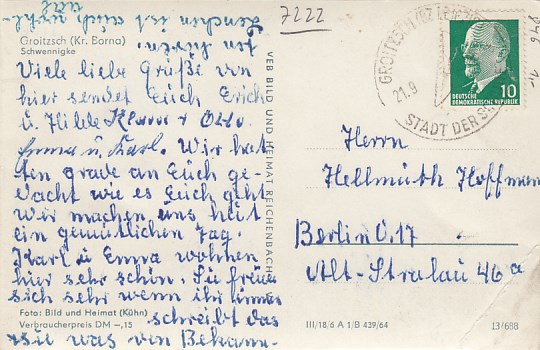 7222
846 1.-
Groitzsch (Kr. Borna)
Schwennigke
Viele liebe Grüße von
hier sendet Euch Erich
u. Hilde Klaus + Otto.
Emma u. Karl. Wir hat
ten grade an Euch ge-
dacht wie es Euch geht
Wir machen uns heut
ein gemütlichen Tag.
Karl u Emma wohnen
hier sehr schön. Sie freuen
sich sehr wenn ihr ihnen
schreibt das
sie was von Bekann-
ten hören.
Lenchen ist auch wohl-
Foto: Bild und Heimat (Kühn)
Verbraucherpreis DM –,15
VEB BILD UND HEIMAT REICHENBACH
GROITZSCH (BZ LEIPZIG)
21.9
STADT DER
10
DEUTSCHE
DEMOKRATISCHE REPUBLIK
Herrn
Hellmuth Hoffmann
Berlin O.17
Alt-Stralau 46a
III/18/6 A 1/B 439/64
13/688